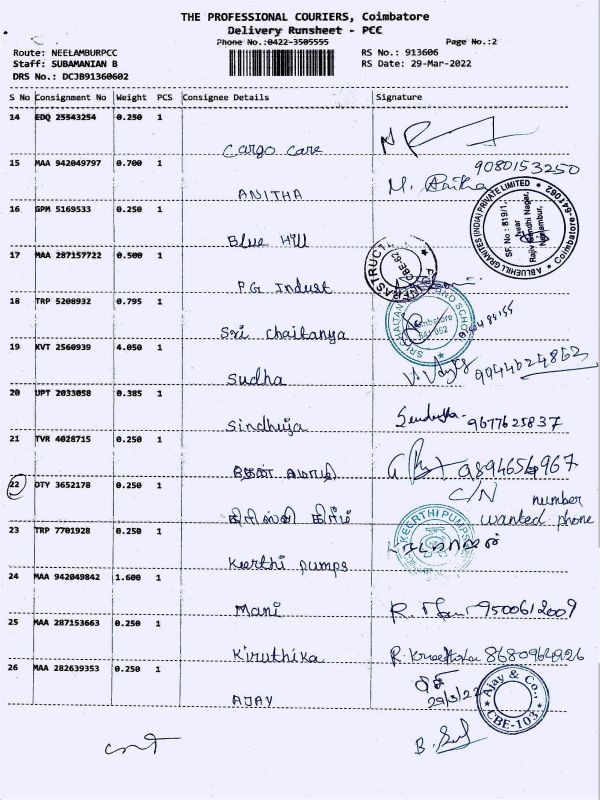 THE PROFESSIONAL COURIERS, Coimbatore
Delivery Runsheet - PCC
Phone No.:0422-3505555 Page No.:2
Route: NEELAMBURPCC RS No.: 913606
Staff: SUBAMANIAN B RS Date: 29-Mar-2022
DRS No.: DCJB91360602
S No Consignment No Weight PCS Consignee Details Signature
14 EDQ 25543254 0.250 1
Cargo care
15 MAA 942049797 0.700 1 9080153250
ANITHA M.
16 GPM 5169533 0.250 1
Blue Hill
ABLUEHILL GRANITES (INDIA) PRIVATE LIMITED ★ Coimbatore-641062
SF. No : 819/1,
Near
Rajiv Gandhi Nagar,
Neelambur,
17 MAA 287157722 0.500 1
P.G Indust
CBE-62
18 TRP 5208932 0.795 1
Sri Chaitanya
Coimbatore
641 062
19 KVT 2560939 4.050 1
Sudha 9944624863
20 UPT 2033058 0.385 1
Sindhuja 9677625837
21 TVR 4028715 0.250 1
9894656967
22 DTY 3652178 0.250 1 C/N number
wanted phone
23 TRP 7701928 0.250 1
KEERTHI PUMPS
Keerthi pumps
24 MAA 942049842 1.600 1
Mani R. Mani 9500612009
25 MAA 287153663 0.250 1
Kiruthika R. 8680964926
26 MAA 282639353 0.250 1
29/3/22
AJAY
Ajay & Co.,
CBE-103
B.